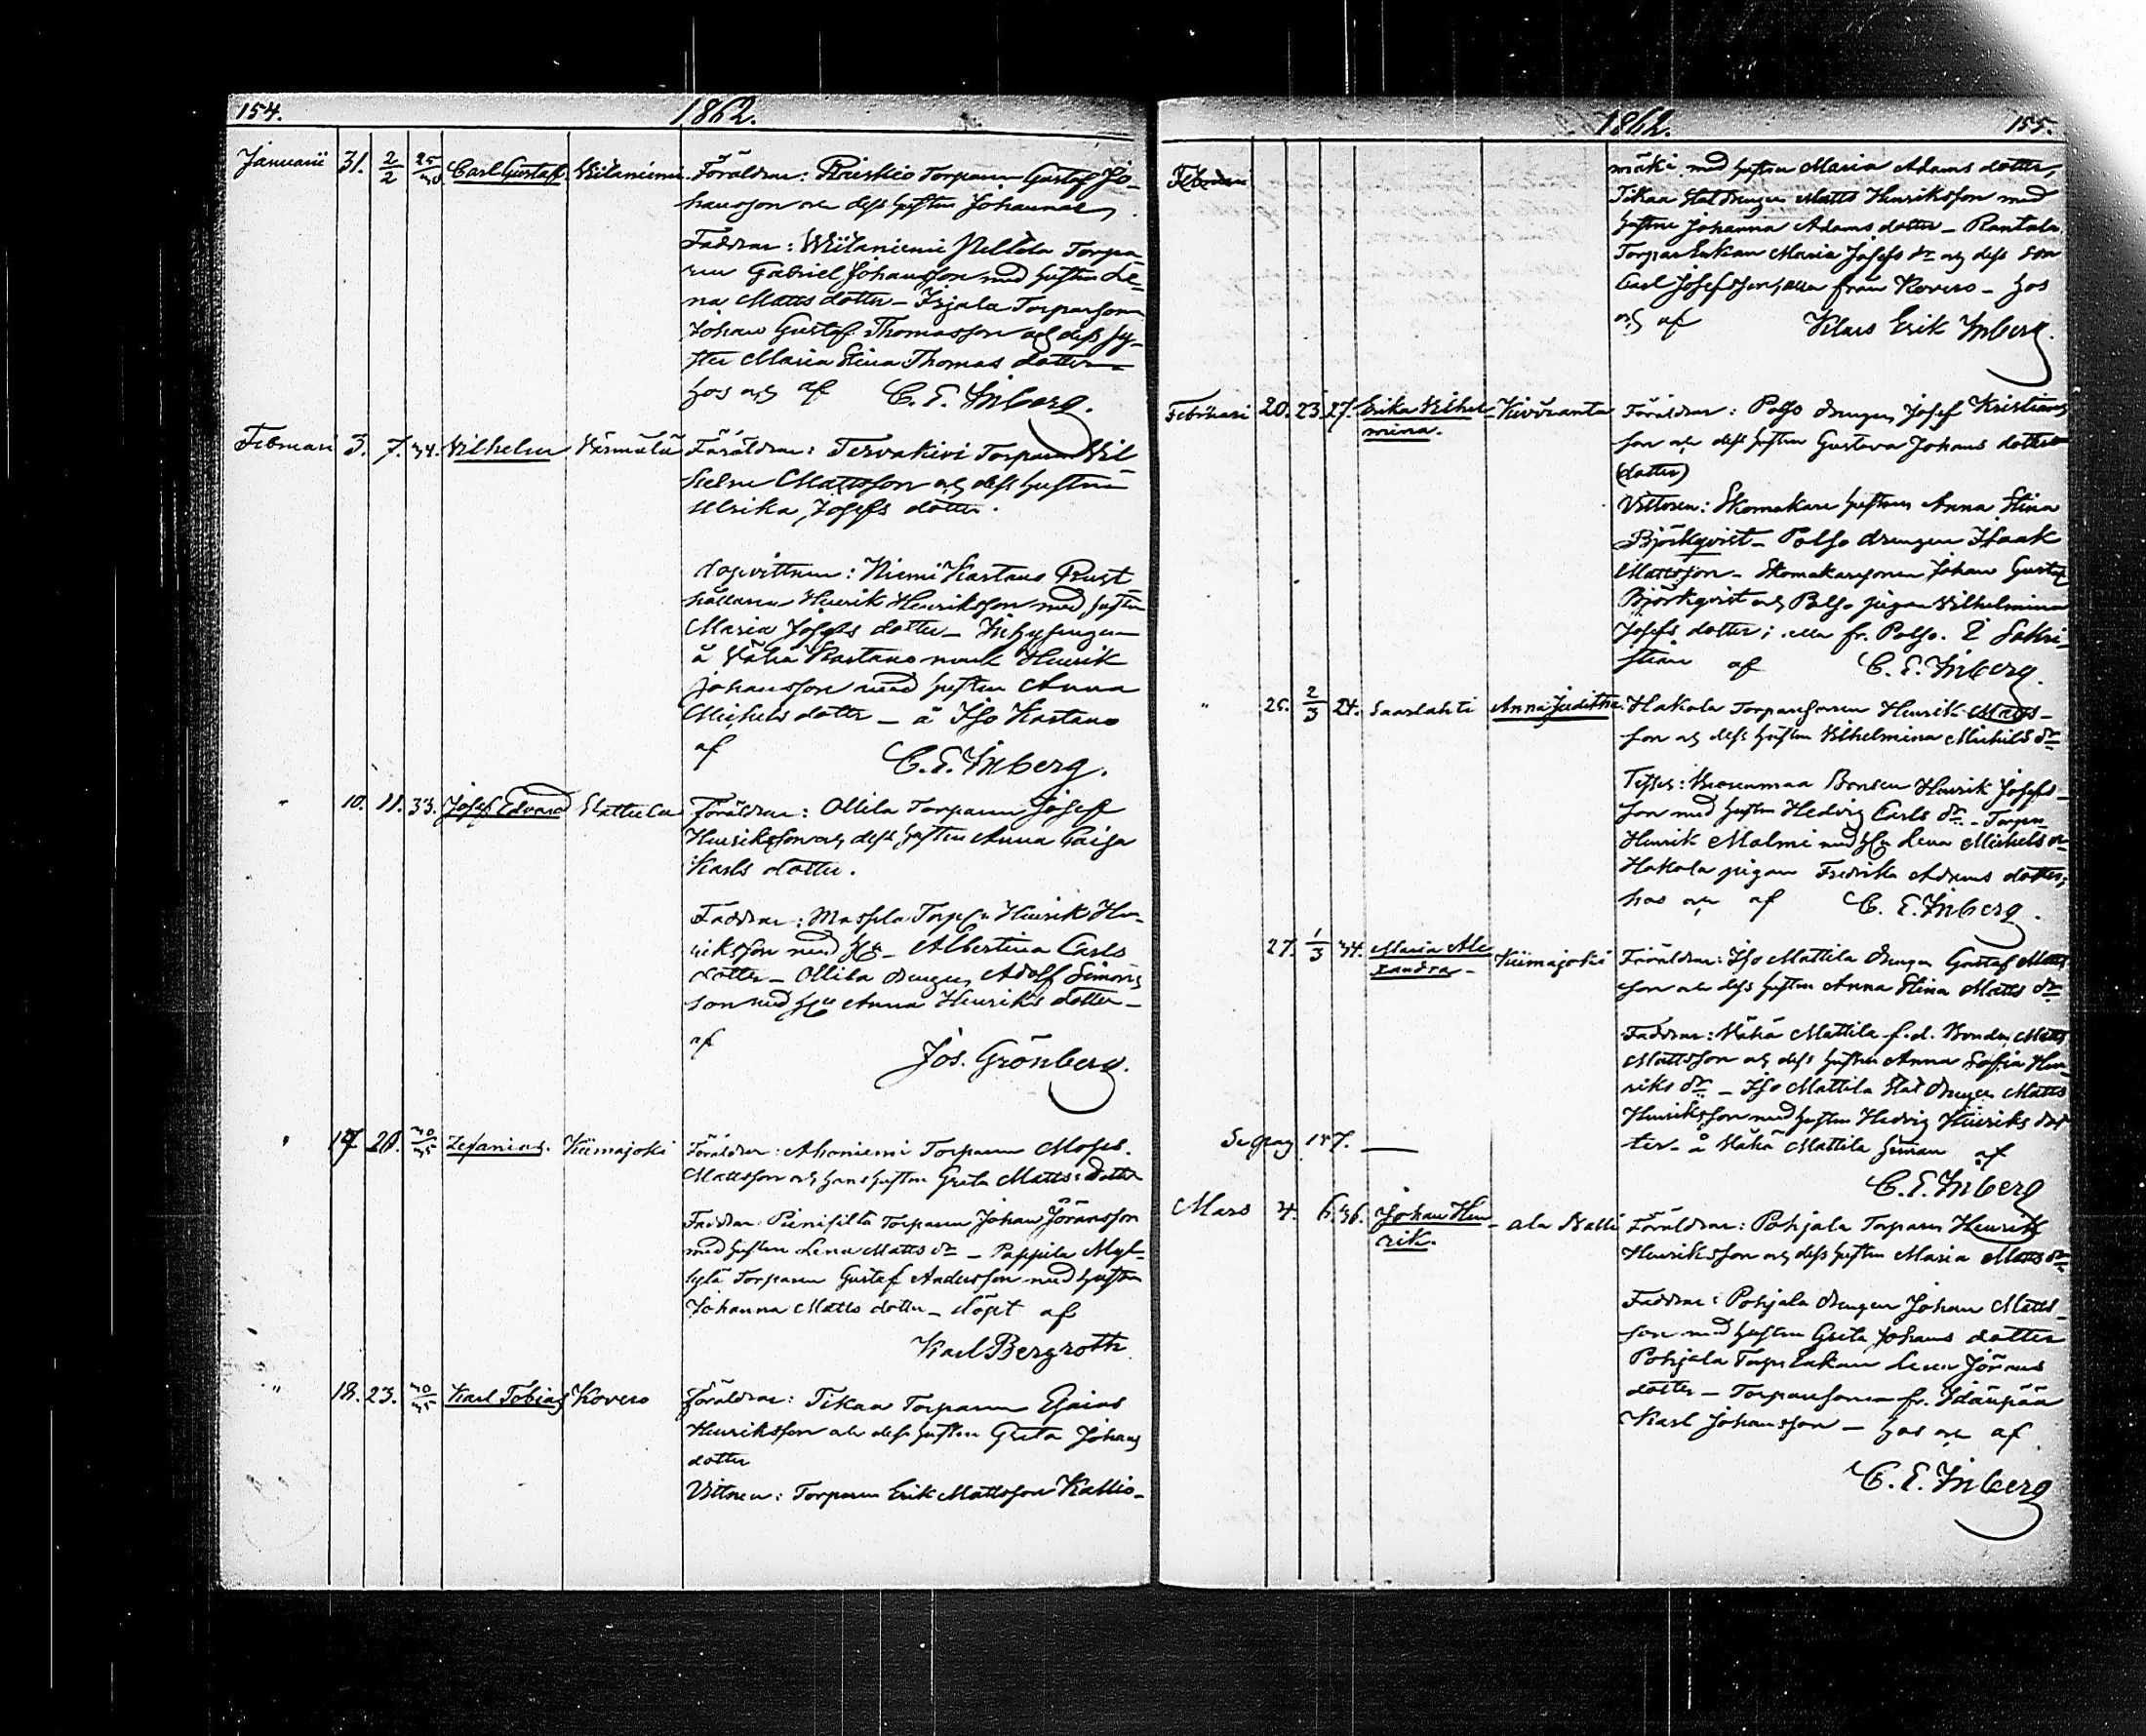 154. 1862.
Januarii 31. 2/2 25/30 Carl Gustaf. Wiitaniemi. Föräldrar: Rouskio Torparen Gustaf Jo-
hansson och dess hustru Johanna
Faddrar: Wiitaniemi Torpa-
ren Gabriel Johansson med hustru Le-
na Matts dotter – Irjala Torparson
Johan Gustaf Thomasson och dess sy-
ster Maria Stina Thomas dotter –
hos och af C. E. Inberg.
Februari 3. 7. 34. Vilhelm Wärmälä Föräldrar: Tervakivi Torparen Vil-
helm Mattsson och dess hustru
Ulrika Josefs dotter.
Dopvittnen: Niemi Kastano Rust-
hållaren Henrik Henriksson med hustru
Maria Josefs dotter – Inhysingen
å Vähä Kastano mark Henrik
Johansson med hustru Anna
Michels dotter – å Iso Kastano
af C. E. Inberg.
" 10. 11. 33. Josef Edvard Föräldrar: Ollila Torparen Josef
Henriksson och dess hustru Anna Caisa
Karls dotter.
Faddrar: Massila Torp. Henrik Hen-
riksson med H:u Albertina Carls
dotter – Ollila drengen Adolf Simons
son med H:u Anna Henriks dotter –
af
Jos. Grönberg.
" 17. 20. 30/35 Zefanias. Kiimajoki Föräldrar: Ahoniemi Torparen Moses
Mattsson och hans hustru Greta Matts dotter
Faddrar: Pienisilta Torparen Johan Jöransson
med hustru Lena Matts dr – Pappila Myl-
lylä Torparen Gustaf Andersson med hustru
Johanna Matts dotter – döpt af
Karl Bergroth
" 18. 23. 30/35 Karl Tobias Kovero Föräldrar: Tikan Torparen Esaias
Henriksson och dess hustru Greta Johans
dotter
Vittnen: Torparen Erik Mattsson Kallio-
1862. 155.
mäki med hustru Maria Adams dotter,
Tikan Statdrengen Matts Henriksson med
hustru Johanna Adams dotter – Rantala
Torpar Enkan Maria Josefs dr och dess Son
Carl Josefsson, alla från Kovero – hos
och af Klas Erik Inberg.
Februari 20. 23. 27. Erika Vilhel- Kivöranta Föräldrar: Polso drengen Josef Kristians
mina. son och dess hustru Gustava Johans dotter
(dotter)
Vittnen: Skomakare hustrun Anna Stina
Björkqvist – Polso drengen Isaak
Mattsson – Skomakaresonen Johan Gustaf
Björkqvist och Polso pigan Vilhelmina
Josefs dotter; alla fr. Polso. I Sakri-
stian af C. E. Inberg.
" 25. 2/3 24. Saarlahti Anna Juditha. Hakola Torparsonen Henrik Matts-
son och dess hustru Vilhelmina Michels dr
Testes: Bonden Henrik Josefs-
son med hustru Hedvig Carls dr – Torpn
Henrik Malmi med H:u Lena Michels dr
Hakola pigan Fredrika Adams dotter;
hos och af C. E. Inberg.
27. 1/3 34. Maria Ale- Kiimajoki Föräldrar: Iso Mattila drengen Gustaf Matts
xandra – son och dess hustru Anna Stina Matts dr
Faddrar: Vähä Mattila f.d. Bonden Matts
Mattsson och dess hustru Anna Sofia Hen-
riks dr – Iso Mattila Stat drengen Matts
Henriksson med hustru Hedvig Henriks dot-
ter – å Vähä Mattila hemman af
C. E. Inberg
Se pag 157. —
Mars 4. 6. 36. Johan Hen- ala Kalli Föräldrar: Pohjala Torparen Henrik
rik. Henriksson och dess hustru Maria Matts dr
Faddrar: Pohjala drengen Johan Matts-
son med hustru Greta Johans dotter
Pohjala Torpar Enkan Lena Jörans
dotter – Torparsonen fr. Idänpää
Karl Johansson – hos och af
C. E. Inberg